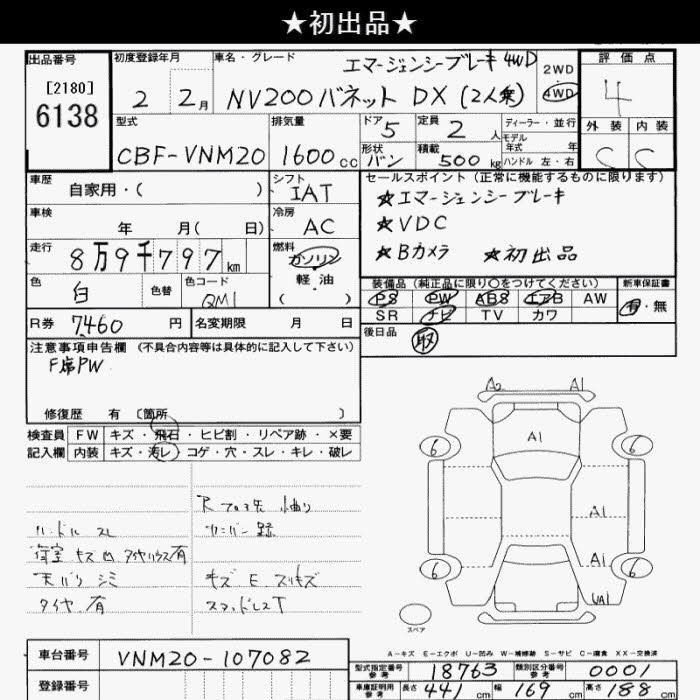 ★初出品★
出品番号
[2180]
6138
初度登録年月
2 2月
車名・グレード
エマージェンシーブレーキ 4WD
NV200バネット DX (2人乗)
2WD
4WD
評価点
4
外装 内装
C C
型式
CBF-VNM20
排気量
1600cc
ドア
5
定員
2人
ディーラー・並行
モデル年式 年
形状
バン
積載
500kg
ハンドル 左・右
車歴
自家用・( )
シフト
IAT
セールスポイント (正常に機能するものに限ります)
★エマージェンシーブレーキ
★VDC
★Bカメラ ★初出品
車検
年 月( 日)
冷房
AC
走行
8万9千797km
燃料
ガソリン
軽・油
( )
色
白
色替
色コード
QM1
装備品 (純正品に限り〇をつけてください)
PS PW ABS エアB AW
SR ナビ TV カワ
新車保証書
有・無
R券 7460円
名変期限 月 日
後日品
取
注意事項申告欄 (不具合内容等は具体的に記入して下さい)
F席PW
修復歴 有 〔箇所 〕
検査員 FW キズ・飛石・ヒビ割・リペア跡・×要
記入欄 内装 キズ・汚レ・コゲ・穴・スレ・キレ・破レ
ハンドル スレ
荷室 キズ 凹 タイヤハウス有
天バリ シミ
タイヤ 有
キズ E スリキズ
スタッドレスT
A2 A1
A1
6 6
A1
A1
6 6
UA1
スペア
A-キズ E-エクボ U-凹み W-補修跡 S-サビ C-腐食 XX-交換済
車台番号 VNM20-107082
登録番号
型式指定番号 参考 18763
類別区分番号 参考 0001
車庫証明用 参考 長さ 441cm 幅 169cm 高さ 188cm